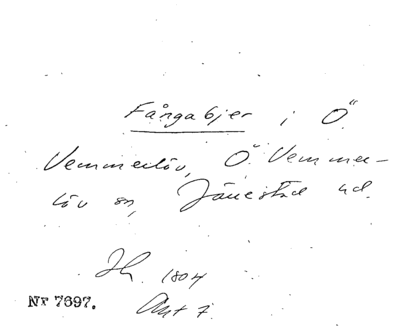 Fångabjer i Ö.
Vemmerlöv, Ö. Vemmer-
löv sn, Järrestad hd.
Jh. 1804
Akt 7.
Nr 7697.